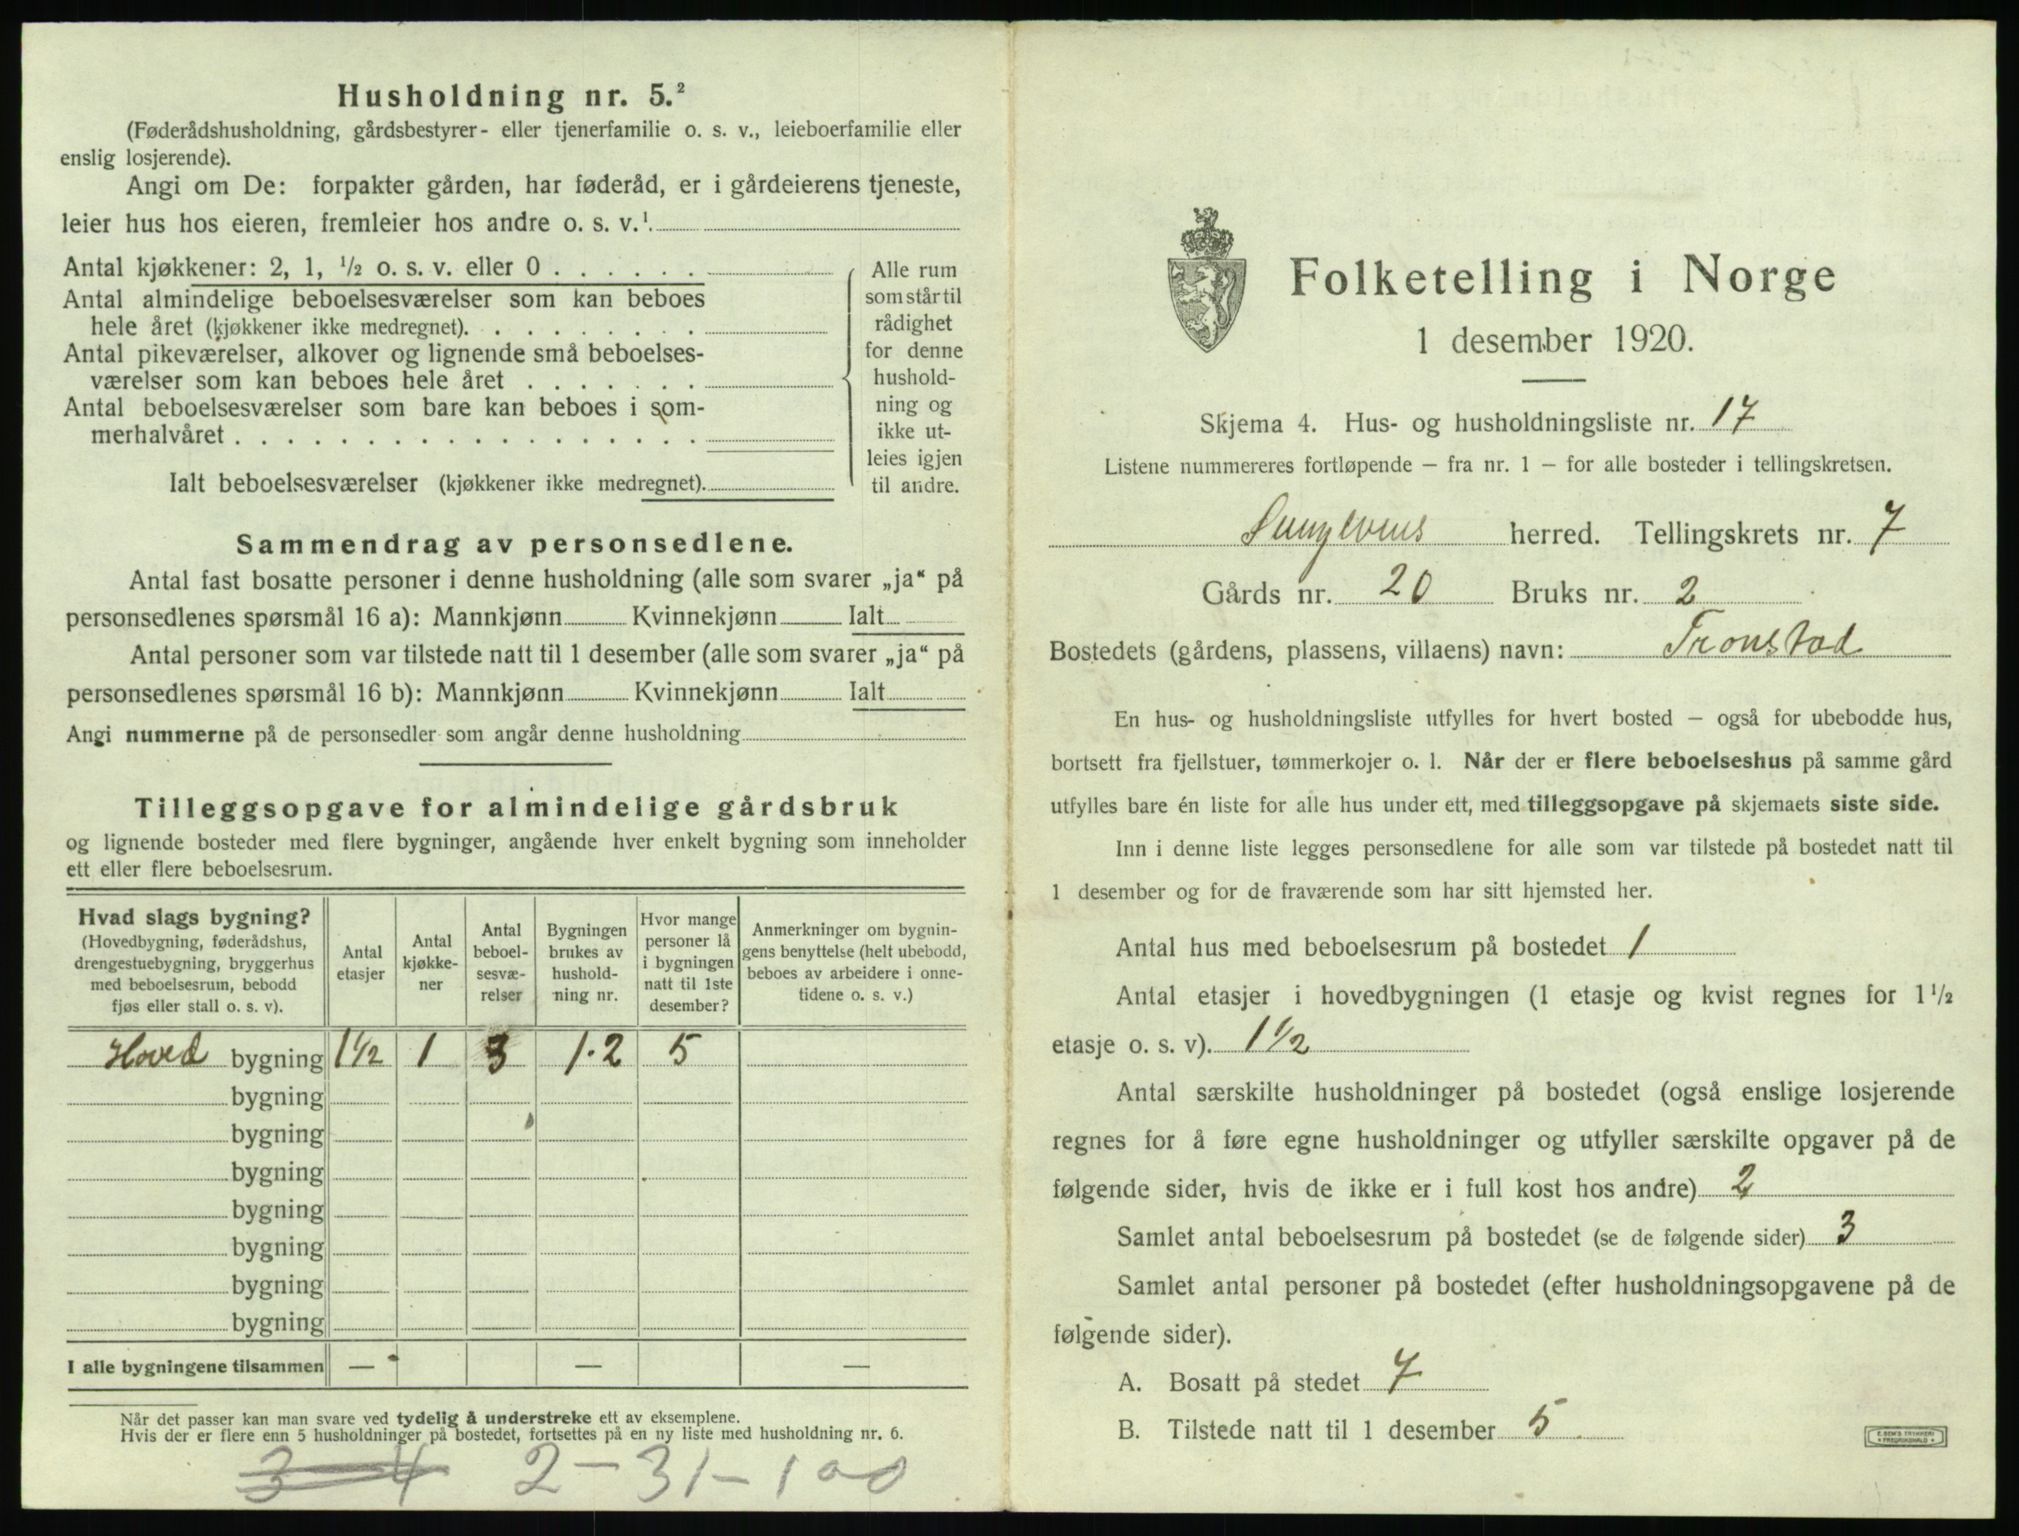 Husholdning nr. 5.²
(Føderådshusholdning, gårdsbestyrer- eller tjenerfamilie o. s. v., leieboerfamilie eller
enslig losjerende).
Angi om De: forpakter gården, har føderåd, er i gårdeierens tjeneste,
leier hus hos eieren, fremleier hos andre o. s. v.¹
Antal kjøkkener: 2, 1, ½ o. s. v. eller 0 . . . . . .
Antal almindelige beboelsesværelser som kan beboes
hele året (kjøkkener ikke medregnet). . . . . . . . .
Antal pikeværelser, alkover og lignende små beboelses-
værelser som kan beboes hele året . . . . . . .
Antal beboelsesværelser som bare kan beboes i som-
merhalvåret . . . . . . . . . . . . . . . . . .
Ialt beboelsesværelser (kjøkkener ikke medregnet).
Alle rum
som står til
rådighet
for denne
hushold-
ning og
ikke ut-
leies igjen
til andre.
Sammendrag av personsedlene.
Antal fast bosatte personer i denne husholdning (alle som svarer „ja“ på
personsedlenes spørsmål 16 a): Mannkjønn Kvinnekjønn Ialt
Antal personer som var tilstede natt til 1 desember (alle som svarer „ja“ på
personsedlenes spørsmål 16 b): Mannkjønn Kvinnekjønn Ialt
Angi nummerne på de personsedler som angår denne husholdning
Tilleggsopgave for almindelige gårdsbruk
og lignende bosteder med flere bygninger, angående hver enkelt bygning som inneholder
ett eller flere beboelsesrum.
Hvad slags bygning?
(Hovedbygning, føderådshus,
drengestuebygning, bryggerhus
med beboelsesrum, bebodd
fjøs eller stall o. s. v).
Antal
etasjer
Antal
kjøkke-
ner
Antal
beboel-
sesvæ-
relser
Bygningen
brukes av
hushold-
ning nr.
Hvor mange
personer lå
i bygningen
natt til 1ste
desember?
Anmerkninger om bygnin-
gens benyttelse (helt ubebodd,
beboes av arbeidere i onne-
tidene o. s. v.)
Hoved bygning 1½ 1 3 1·2 5
bygning
bygning
bygning
bygning
bygning
bygning
bygning
I alle bygningene tilsammen — — —
Når det passer kan man svare ved tydelig å understreke ett av eksemplene.
Hvis der er flere enn 5 husholdninger på bostedet, fortsettes på en ny liste med husholdning nr. 6.
3 – 4 2 – 31 – 100
Folketelling i Norge
1 desember 1920.
Skjema 4. Hus- og husholdningsliste nr. 17
Listene nummereres fortløpende – fra nr. 1 – for alle bosteder i tellingskretsen.
herred. Tellingskrets nr. 7
Gårds nr. 20 Bruks nr. 2
Bostedets (gårdens, plassens, villaens) navn: Tronstad
En hus- og husholdningsliste utfylles for hvert bosted – også for ubebodde hus,
bortsett fra fjellstuer, tømmerkojer o. l. Når der er flere beboelseshus på samme gård
utfylles bare én liste for alle hus under ett, med tilleggsopgave på skjemaets siste side.
Inn i denne liste legges personsedlene for alle som var tilstede på bostedet natt til
1 desember og for de fraværende som har sitt hjemsted her.
Antal hus med beboelsesrum på bostedet 1
Antal etasjer i hovedbygningen (1 etasje og kvist regnes for 1½
etasje o. s. v). 1½
Antal særskilte husholdninger på bostedet (også enslige losjerende
regnes for å føre egne husholdninger og utfyller særskilte opgaver på de
følgende sider, hvis de ikke er i full kost hos andre) 2
Samlet antal beboelsesrum på bostedet (se de følgende sider) 3
Samlet antal personer på bostedet (efter husholdningsopgavene på de
følgende sider).
A. Bosatt på stedet 7
B. Tilstede natt til 1 desember 5
E. SEM'S TRYKKERI
• FREDRIKSHALD •